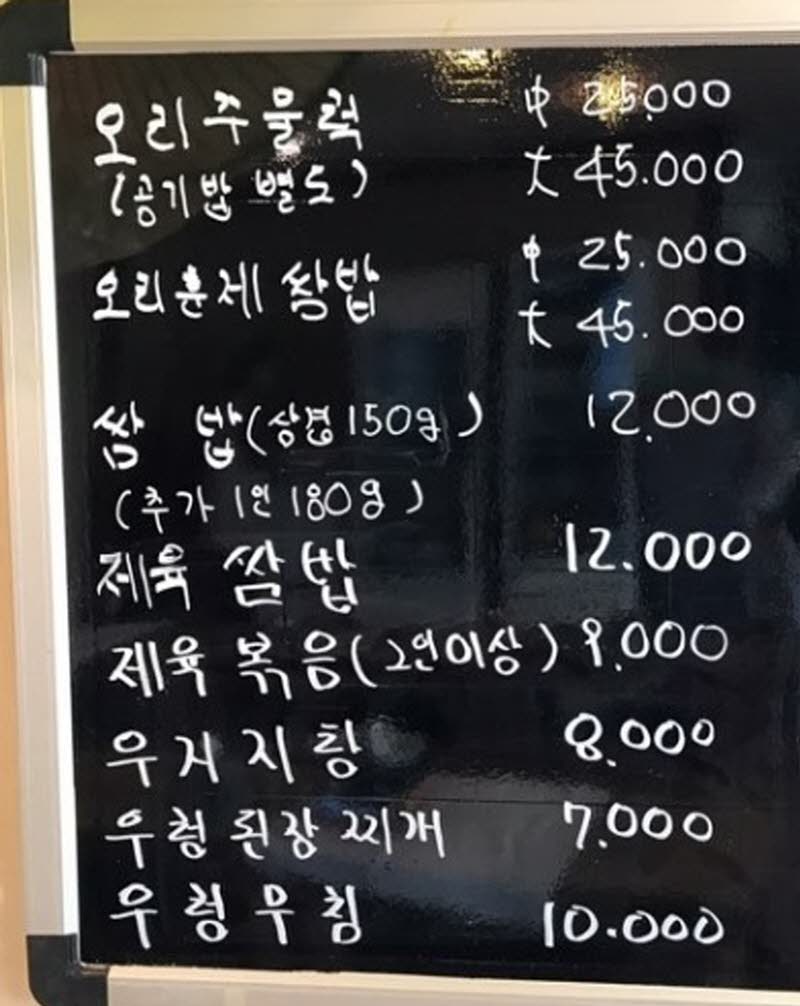 오리주물럭 中 25.000
(공기밥 별도) 大 45.000
오리훈제 쌈밥 中 25.000
大 45.000
쌈 밥(삼겹 150g) 12.000
(추가 1인 180g)
제육 쌈밥 12.000
제육 볶음(2인이상) 9.000
우거지탕 8.000
우렁 된장 찌개 7.000
우렁무침 10.000